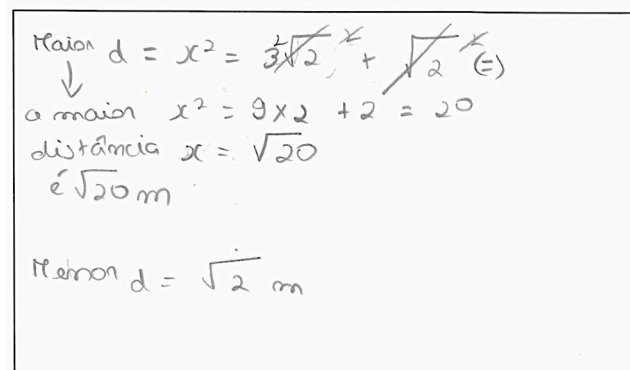 Maior d = x² = 3²√2² + √2² (=)
↓
a maior x² = 9 x 2 + 2 = 20
distância x = √20
é √20 m
Menor d = √2 m